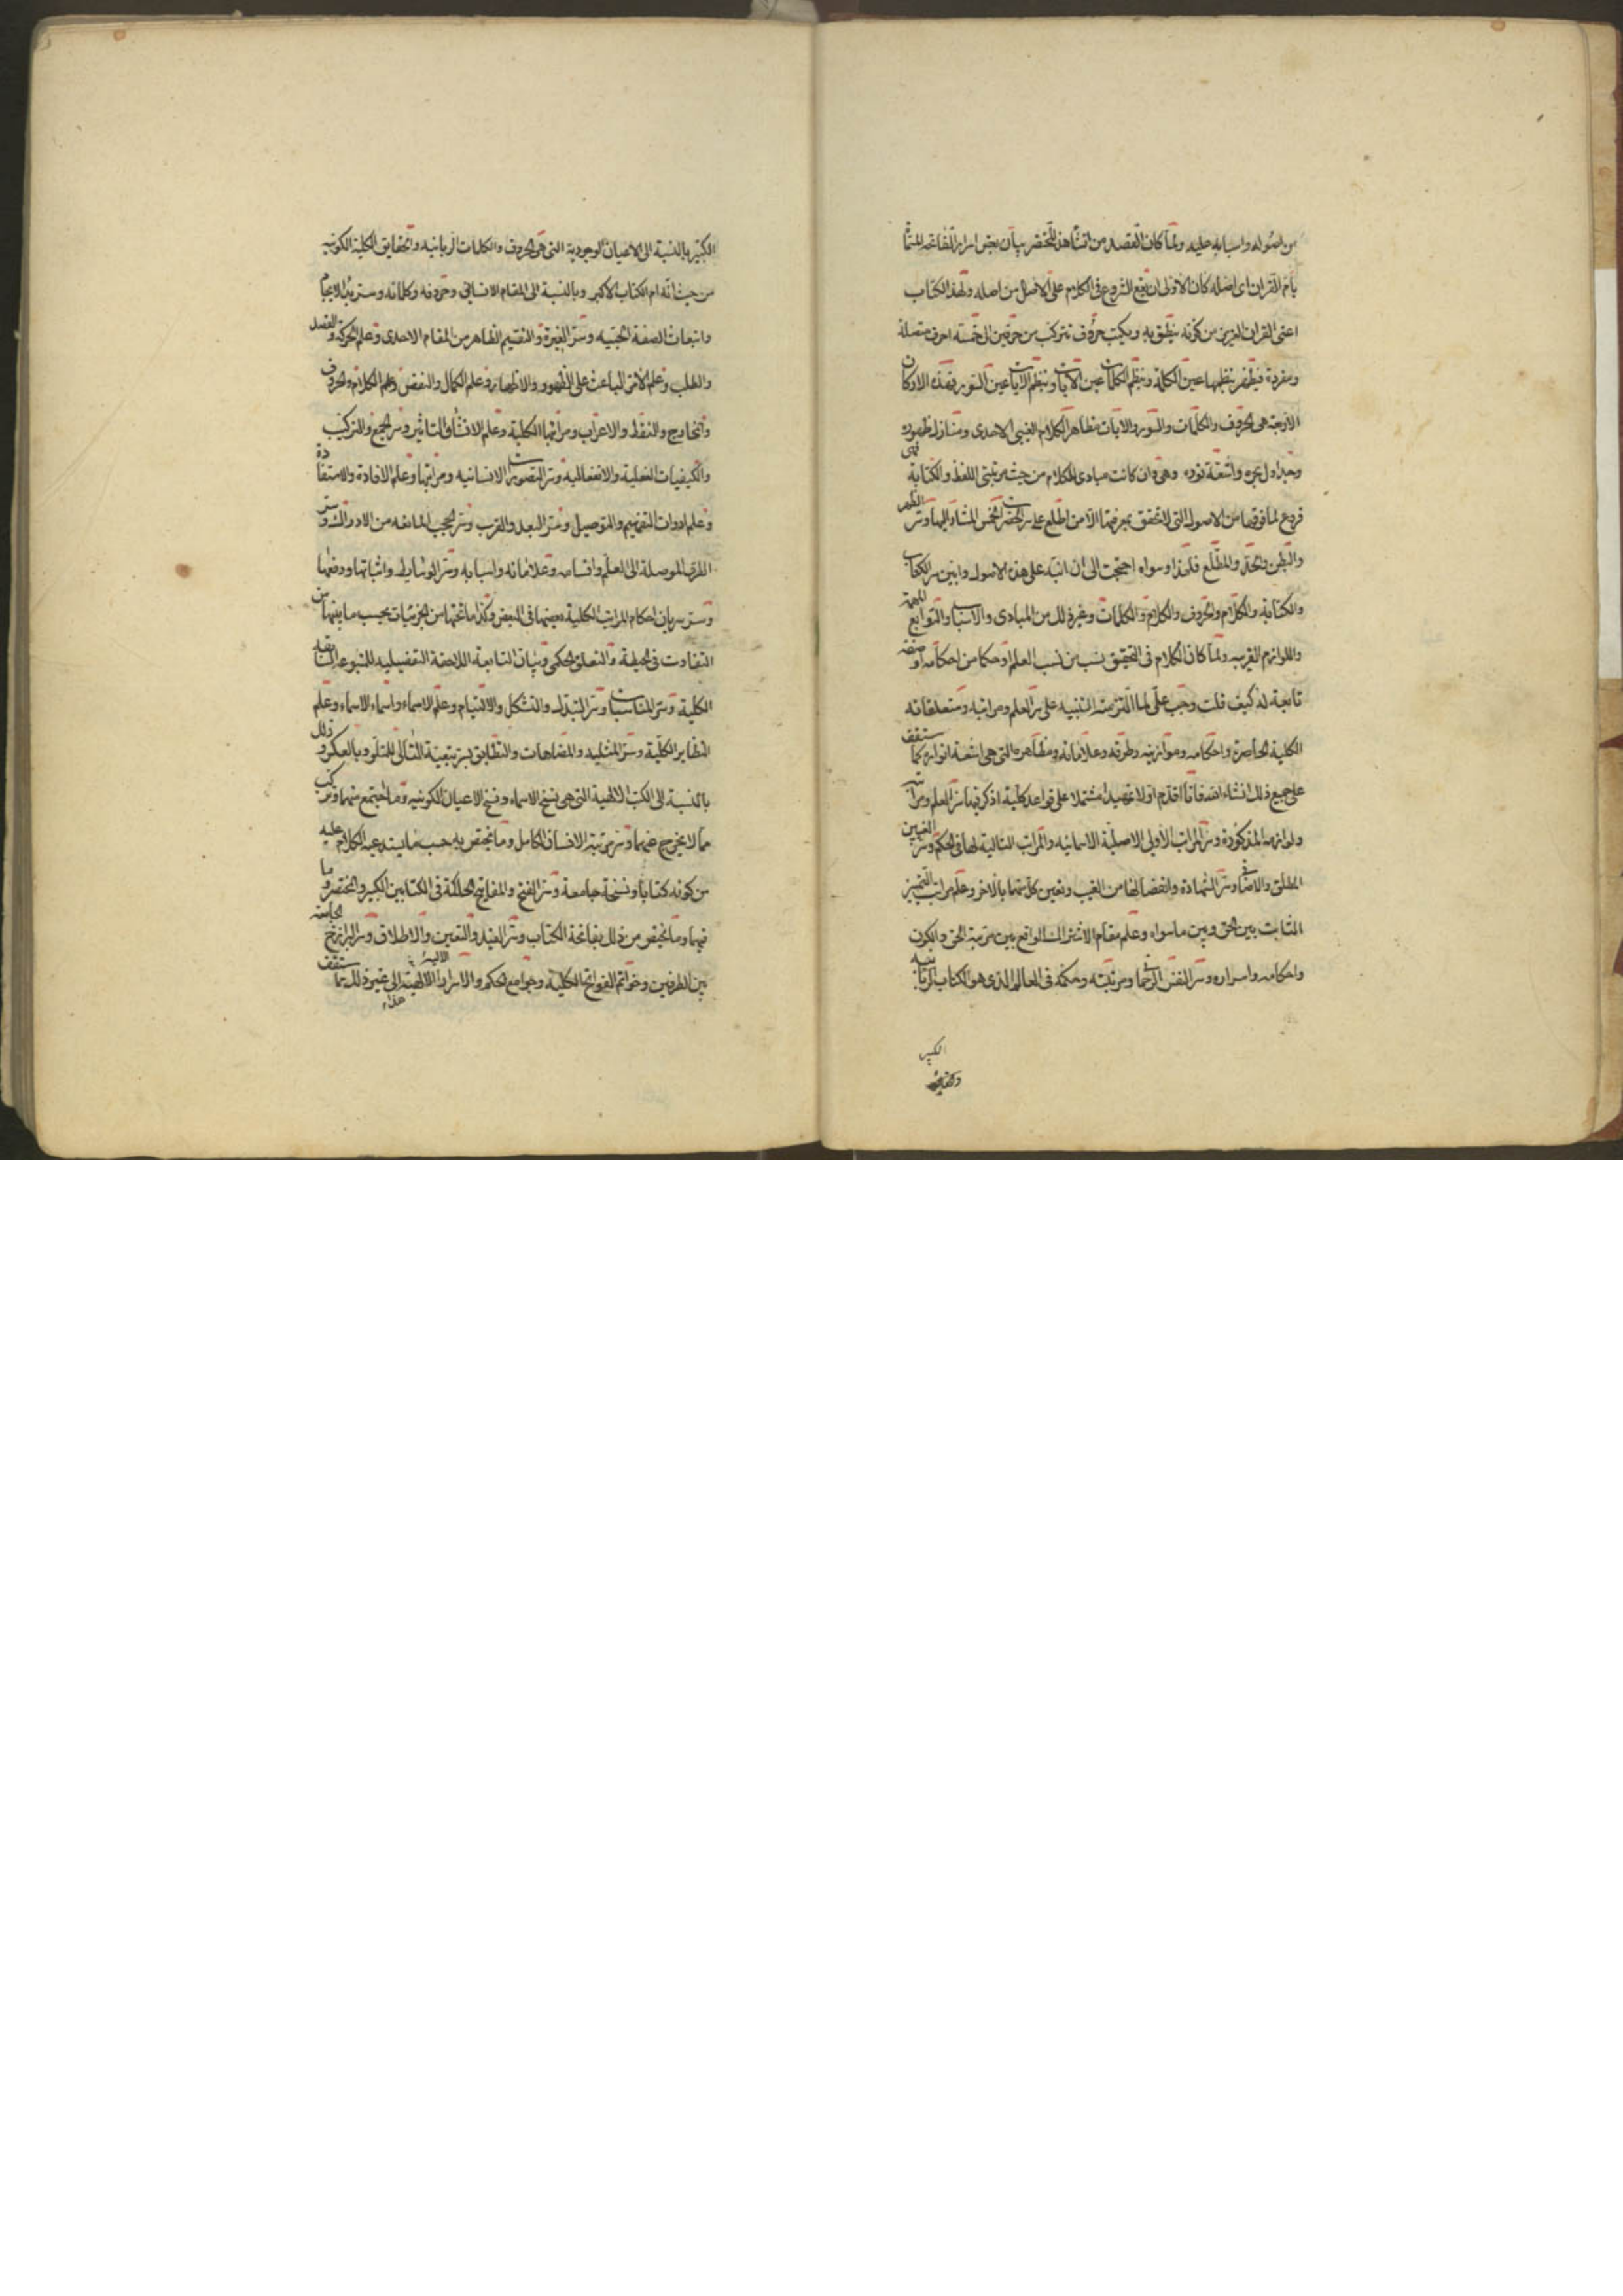 من اصوله واسبابه عليه ولما كان القصد من انشاء هذا المختصر بيان بعض اسرار الفاتحة المسماة
بام القران اى اصله كان الاولى ان يقع الشروع فى الكلام على الاصل من اصله ولهذا الكتاب
اعنى القران العزيز من كونه ينطق به ويكتب حروف تتركب من حرفين الى خمسة احرف متصلة
ومفردة فيظهر بنظمها عين الكلمة وبنظم الكلمات عين الايات وبنظم الايات عين السور فهذه الاركان
الاربعة هى الحروف والكلمات والسور والايات مظاهر الكلام الغيبى الاحدى ومنازل ظهوره
وجداول بحره واشعة نوره وهى وان كانت مبادى الكلام من حيث مرتبتى اللفظ والكتابة فهى
فروع لما فوقها من الاصول التى لا تتحقق بمعرفتها الا من اطلع على سر الحضرات الخمس المشار اليها وسر الظهر
والبطن والحد والمطلع فلهذا وسواه احتجت الى ان انبه على هذه الاصول وابين سر الكتاب
والكتابة والكلام والحروف والكلام والكلمات وغير ذلك من المبادى والاسباب والتوابع المهمة
واللوازم القريبة ولما كان الكلام فى التحقيق نسبة من نسب العلم او حكما من احكامه او صفة
تابعة له كيف قلت وجب على لما التزمته التنبيه على سر العلم ومراتبه ومتعلقاته
الكلية الحاصرة واحكامه وموازينه وطرقه وعلاماته ومظاهره التى هى اشعة انواره كما ستقف
على جميع ذلك ان شاء الله فانا اقدم اولا تمهيدا مشتملا على قواعد كلية اذكر فيها سر العلم ومراتبه
ولوازمه المذكورة وسر المراتب الاولى الاصلية الاسمائية والمراتب التالية لها فى الحكم وسر الغيبين
المطلق والاضافى وسر الشهادة وانفصالها من الغيب وتعين كل منهما بالاخر وعلم مراتب التمييز
الثابت بين الحق وبين ما سواه وعلم مقام الاشتراك الواقع بين مرتبة الحق والكون
واحكامه واسراره وسر النفس الرحمانى ومرتبته وحكمه فى العالم الذى هو الكتاب الربانيه
الكبير
الكبير بالنسبة الى الاعيان الوجودية التى هى الحروف والكلمات الربانية والحقايق الكلية الكونية
من حيث انه ام الكتاب الاكبر وبالنسبة الى المقام الانسانى وحروفه وكلماته وسر بدء الايجاد
وانبعاث الصفة الحبيه وسر الغيرة والتقسيم الظاهر من المقام الاحدى وعلم الحركة والقصد
والطلب وعلم الامر الباعث على الظهور والاظهار وعلم الكمال والنقص وعلم الكلام والحروف
والمخارج والنقط والاعراب ومراتبها الكلية وعلم الانشاء والتاثير وسر الجمع والتركيب
والكيفيات الفعلية والانفعالية وسر التصورات الانسانية ومراتبها وعلم الافادة والاستفادة
وعلم ادوات التفهيم والتوصيل وسر البعد والقرب وسر الحجب المانعة من الادراك وسر
الطرق الموصلة الى العلم واقسامه وعلاماته واسبابه وسر الوسايط واثباتها ورفعها
وسر سريان احكام المراتب الكلية بعضها فى البعض وكذا ما تحتها من الجزئيات بحسب ما بينهما من
التفاوت فى الحيطة والتعلق الحكمى وبيان التابعة اللاحقة التفصيلية للمتبوعات السابقة
الكلية وسر المناسبات وسر التبدل والتشكل والالتيام وعلم الاسماء واسماء الاسماء وعلم
النظاير الكلية وسر المثلية والمضاهات والتطابق بسر تبعية التالى للمتلو وبالعكس وذلك
بالنسبة الى الكتب الالهية التى هى نسخ الاسماء ونسخ الاعيان الكونية وما اجتمع منهما وتركب
مما لا يخرج عنهما وسر مرتبة الانسان الكامل وما يختص به حسب ما يستدعيه الكلام عليه
من كونه كتابا ونسخة جامعة وسر الفتح والمفاتيح الحاكمة فى الكتابين الكبير والمختصر وما
فيهما وما يختص من ذلك بفاتحة الكتاب وسر القيد والتعين والاطلاق وسر البرازخ الجامعة
بين الطرفين وخواتم الفواتح الكلية وجوامع الحكم والاسرار الالهية الالية الى غير ذلك مما ستقف
هذا